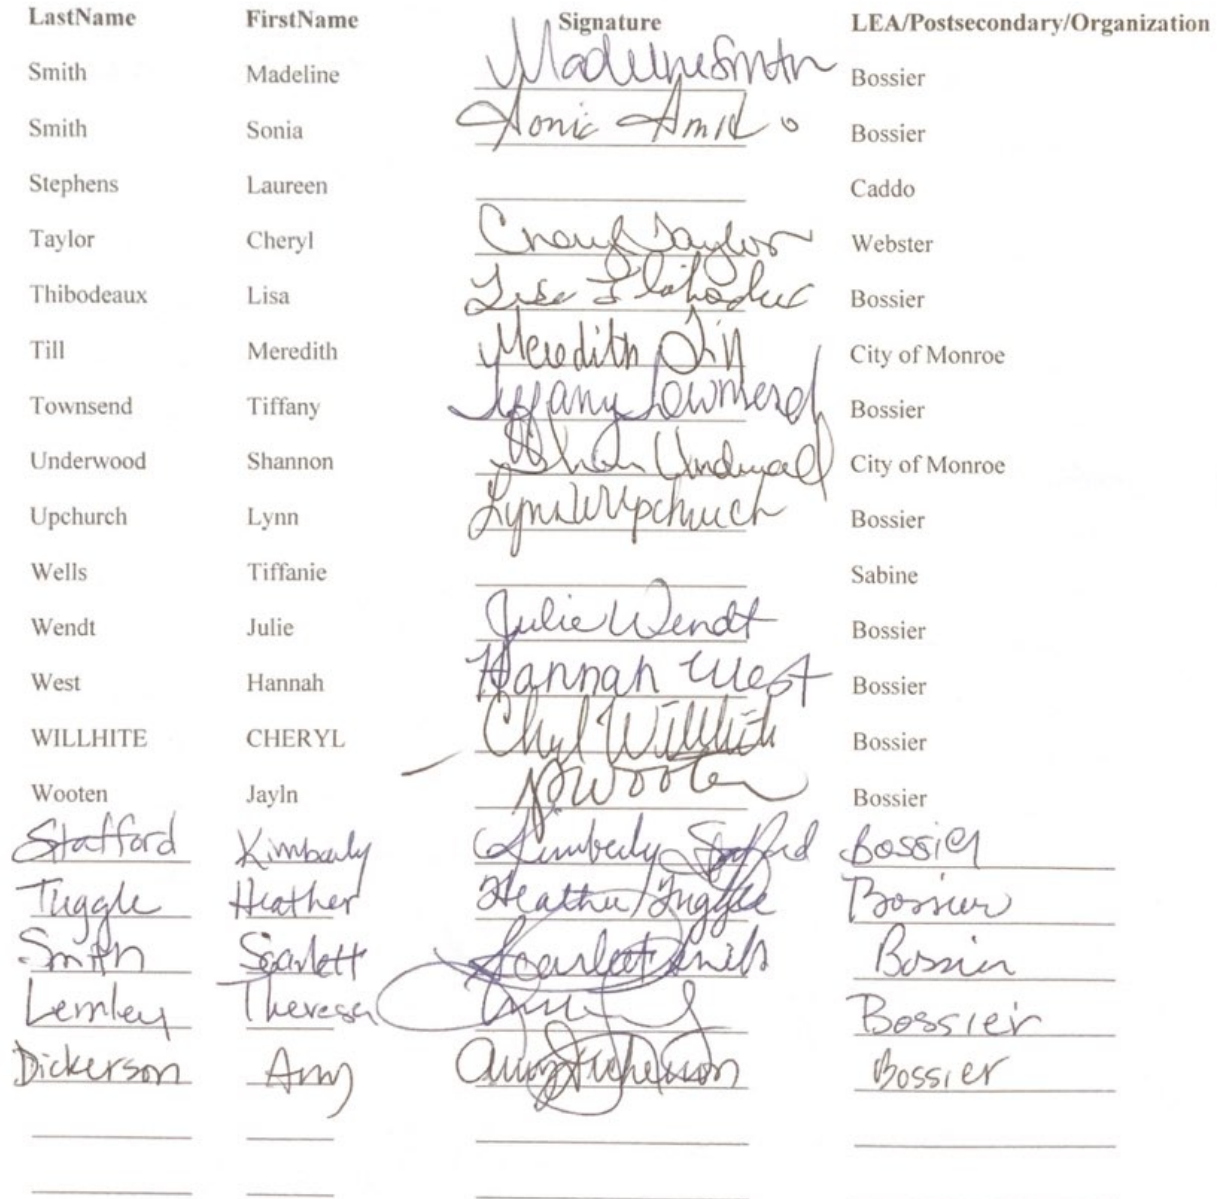 LastName FirstName Signature LEA/Postsecondary/Organization
Smith Madeline Madeline Smith Bossier
Smith Sonia Sonia Smith Bossier
Stephens Laureen Caddo
Taylor Cheryl Cheryl Taylor Webster
Thibodeaux Lisa Lisa Thibodeaux Bossier
Till Meredith Meredith Till City of Monroe
Townsend Tiffany Tiffany Townsend Bossier
Underwood Shannon Shannon Underwood City of Monroe
Upchurch Lynn Lynn W Upchurch Bossier
Wells Tiffanie Sabine
Wendt Julie Julie Wendt Bossier
West Hannah Hannah West Bossier
WILLHITE CHERYL Cheryl Willhite Bossier
Wooten Jayln JWooten Bossier
Stafford Kimberly Kimberly Stafford Bossier
Tuggle Heather Heather Tuggle Bossier
Smith Scarlett Scarlett Smith Bossier
Lemley Theresa Bossier
Dickerson Amy Amy Dickerson Bossier